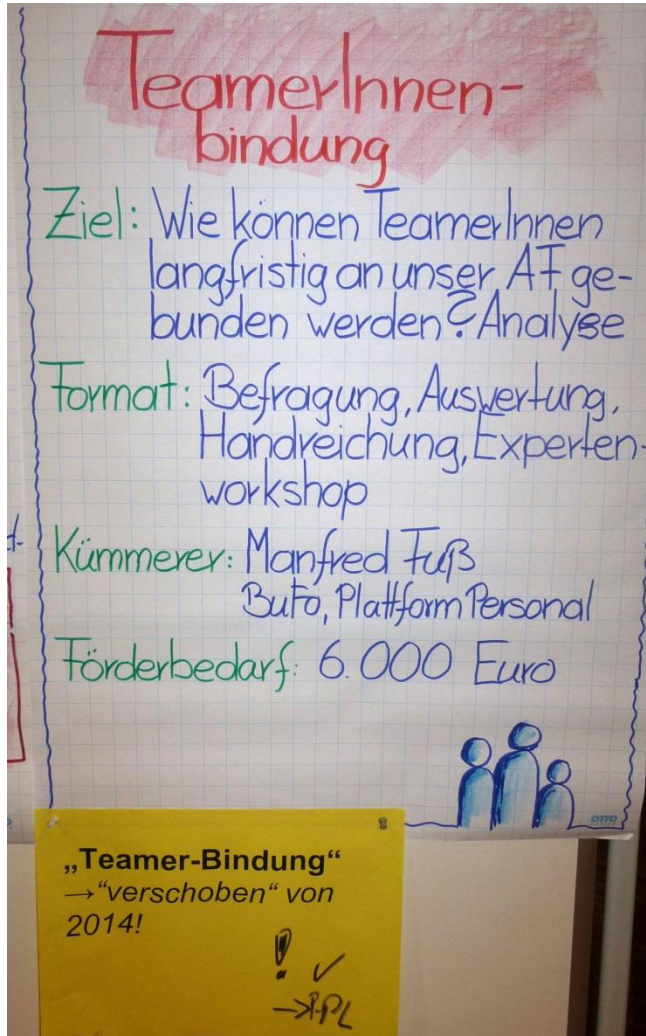 TeamerInnen-
bindung
Ziel: Wie können TeamerInnen
langfristig an unser AF ge-
bunden werden? Analyse
Format: Befragung, Auswertung,
Handreichung, Experten-
workshop
Kümmerer: Manfred Fuß
BuFo, Plattform Personal
Förderbedarf: 6.000 Euro
OTTO
„Teamer-Bindung“
→“verschoben“ von
2014!
! ✓